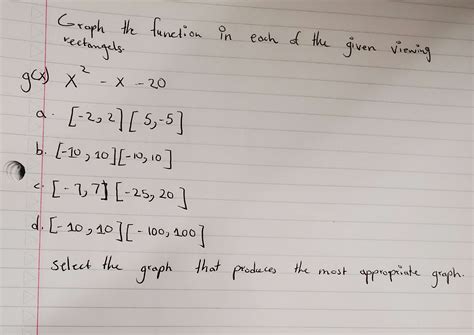 Graph the function in each of the given viewing
rectangels.
g(x) x² - x - 20
a. [-2, 2] [5, -5]
b. [-10, 10] [-10, 10]
c. [-7, 7] [-25, 20]
d. [-10, 10] [-100, 100]
Select the graph that produces the most appropriate graph.